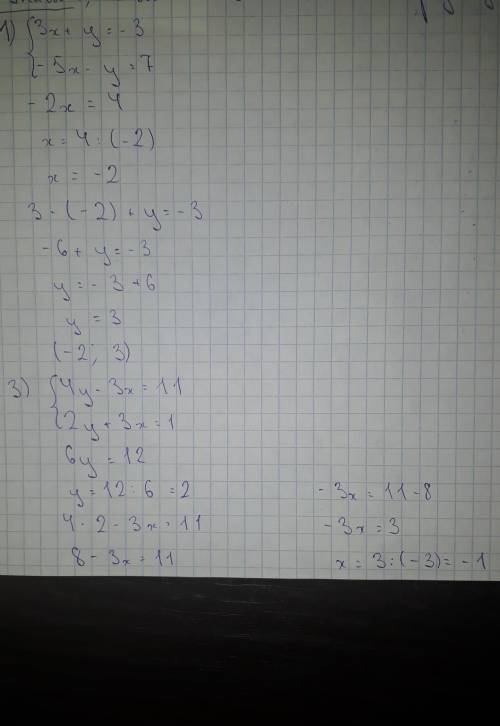 1) { 3x + y = - 3
- 5x - y = 7
- 2x = 4
x = 4 : (-2)
x = -2
3 · (-2) + y = -3
-6 + y = -3
y = - 3 + 6
y = 3
(-2; 3)
3) { 4y - 3x = 11
2y + 3x = 1
6y = 12
y = 12 : 6 = 2
4 · 2 - 3x = 11
8 - 3x = 11
- 3x = 11 - 8
- 3x = 3
x = 3 : (-3) = - 1